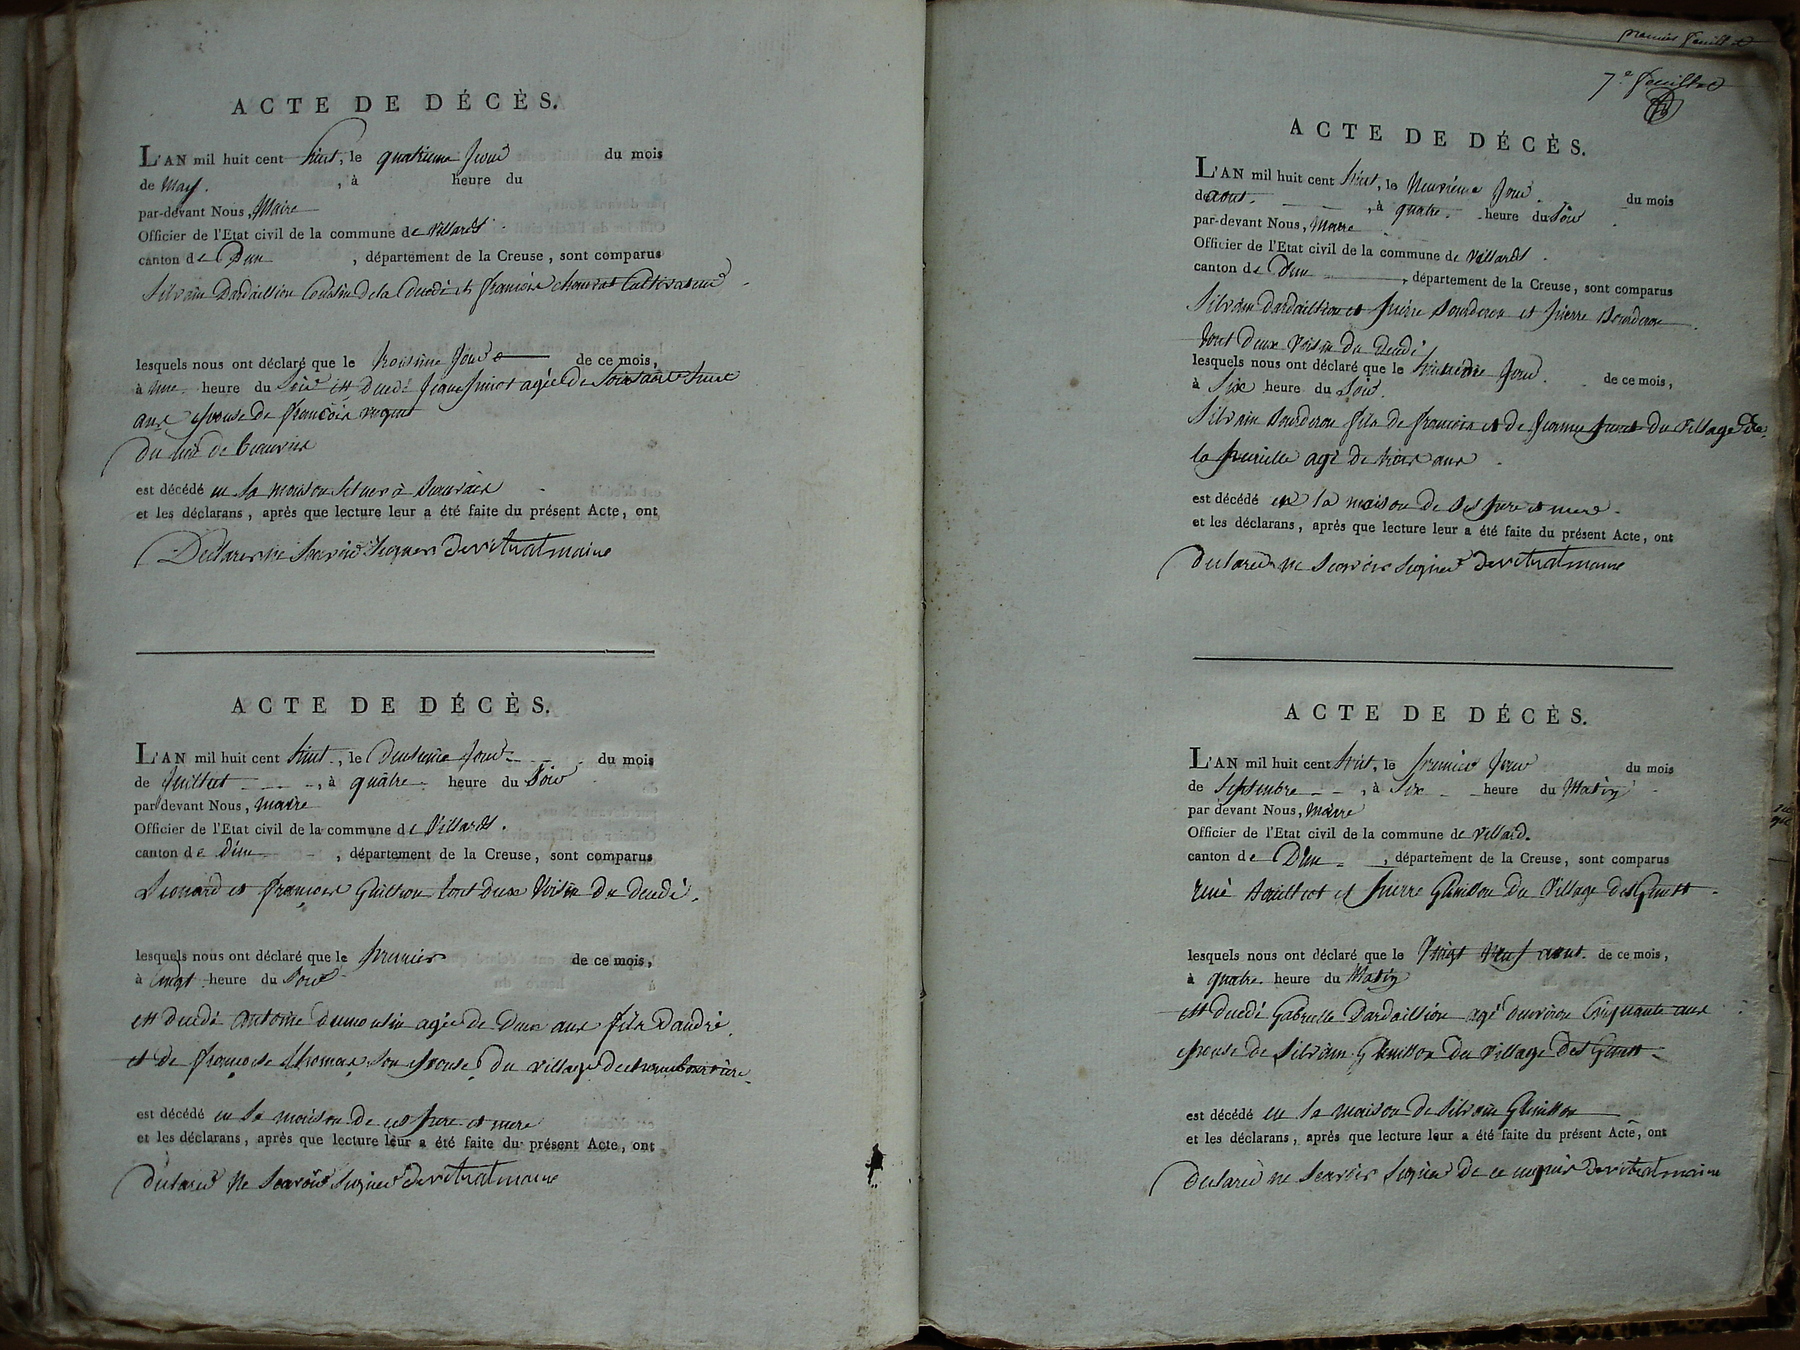 ACTE DE DÉCÈS.
L'AN mil huit cent huit, le quatrieme jour du mois
de May. , à heure du
par-devant Nous, Maire
Officier de l'Etat civil de la commune de Villards.
canton de Dun , département de la Creuse, sont comparus
Silvain Dardaillion Cousin de la decedé et françois chauvat Cultivateur
lesquels nous ont déclaré que le troisime jour de ce mois,
à une heure du Soir est decedé Jeane agée de Soixante huit
ans epouse de françois
du lieu de beauvais
est décédé en sa maison situer à beauvais
et les déclarans, après que lecture leur a été faite du présent Acte, ont
Declarer ne Scavoir Signer Devitrat maire
ACTE DE DÉCÈS.
L'AN mil huit cent huit, le deuxieme jour du mois
de Juillet , à quatre heure du Soir
par devant Nous, maire
Officier de l'Etat civil de la commune de Villards.
canton de dun , département de la Creuse, sont comparus
Leonard et françois Guillion tout deux Voisin du decedé.
lesquels nous ont déclaré que le premier de ce mois,
à vingt heure du Soir
est decedé antoine dumoulin agée de Deux ans fils dandré
et de françoise thomas son epouse du village de
est décédé en la maison de ces pere et mere
et les déclarans, après que lecture leur a été faite du présent Acte, ont
declaré ne Scavoir Signer Devitrat maire
premier feuillet
7e feuillet
ACTE DE DÉCÈS.
L'AN mil huit cent huit, le Neuvième jour du mois
de aout. , à quatre heure du Soir
par-devant Nous, Maire
Officier de l'Etat civil de la commune de Villards.
canton de Dun , département de la Creuse, sont comparus
Silvain dardaillion et pierre Bourderon et pierre Bourderon
tout deux Voisin du decedé
lesquels nous ont déclaré que le huitieme jour de ce mois,
à Six heure du Soir.
Silvain Bourderon fils de françois et de Jeanne du Village de
la agé de trois ans
est décédé en la maison de ses pere et mere.
et les déclarans, après que lecture leur a été faite du présent Acte, ont
declaré ne Scavoir Signer Devitrat maire
ACTE DE DÉCÈS.
L'AN mil huit cent huit, le premier jour du mois
de Septembre , à Six heure du Matin
par devant Nous, Maire
Officier de l'Etat civil de la commune de Villard.
canton de Dun , département de la Creuse, sont comparus
rené et pierre Guillon du Village des
lesquels nous ont déclaré que le Vingt Neuf aout de ce mois,
à quatre heure du Matin
est decedé Gabrielle Dardaillion agé denviron Cinquante ans
epouse de Silvain Guillon du village des
est décédé en la maison de Silvain Guillon
et les déclarans, après que lecture leur a été faite du présent Acte, ont
declaré ne Scavoir Signer de ce Devitrat maire